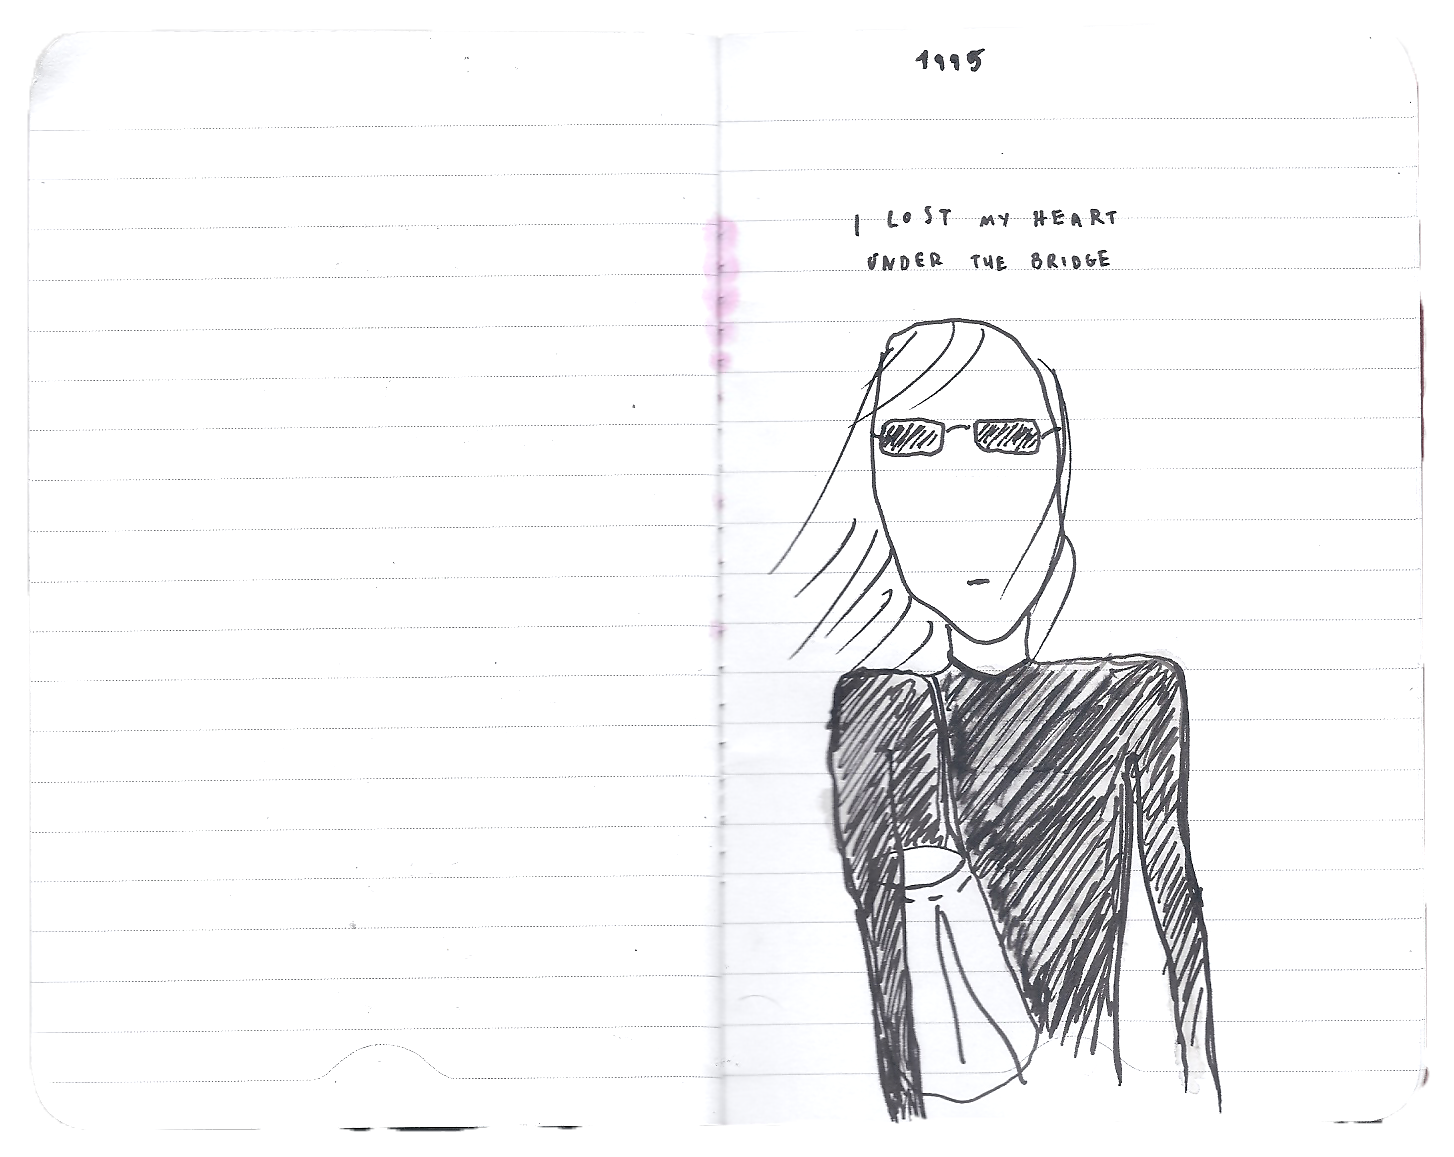 1995
I LOST MY HEART
UNDER THE BRIDGE